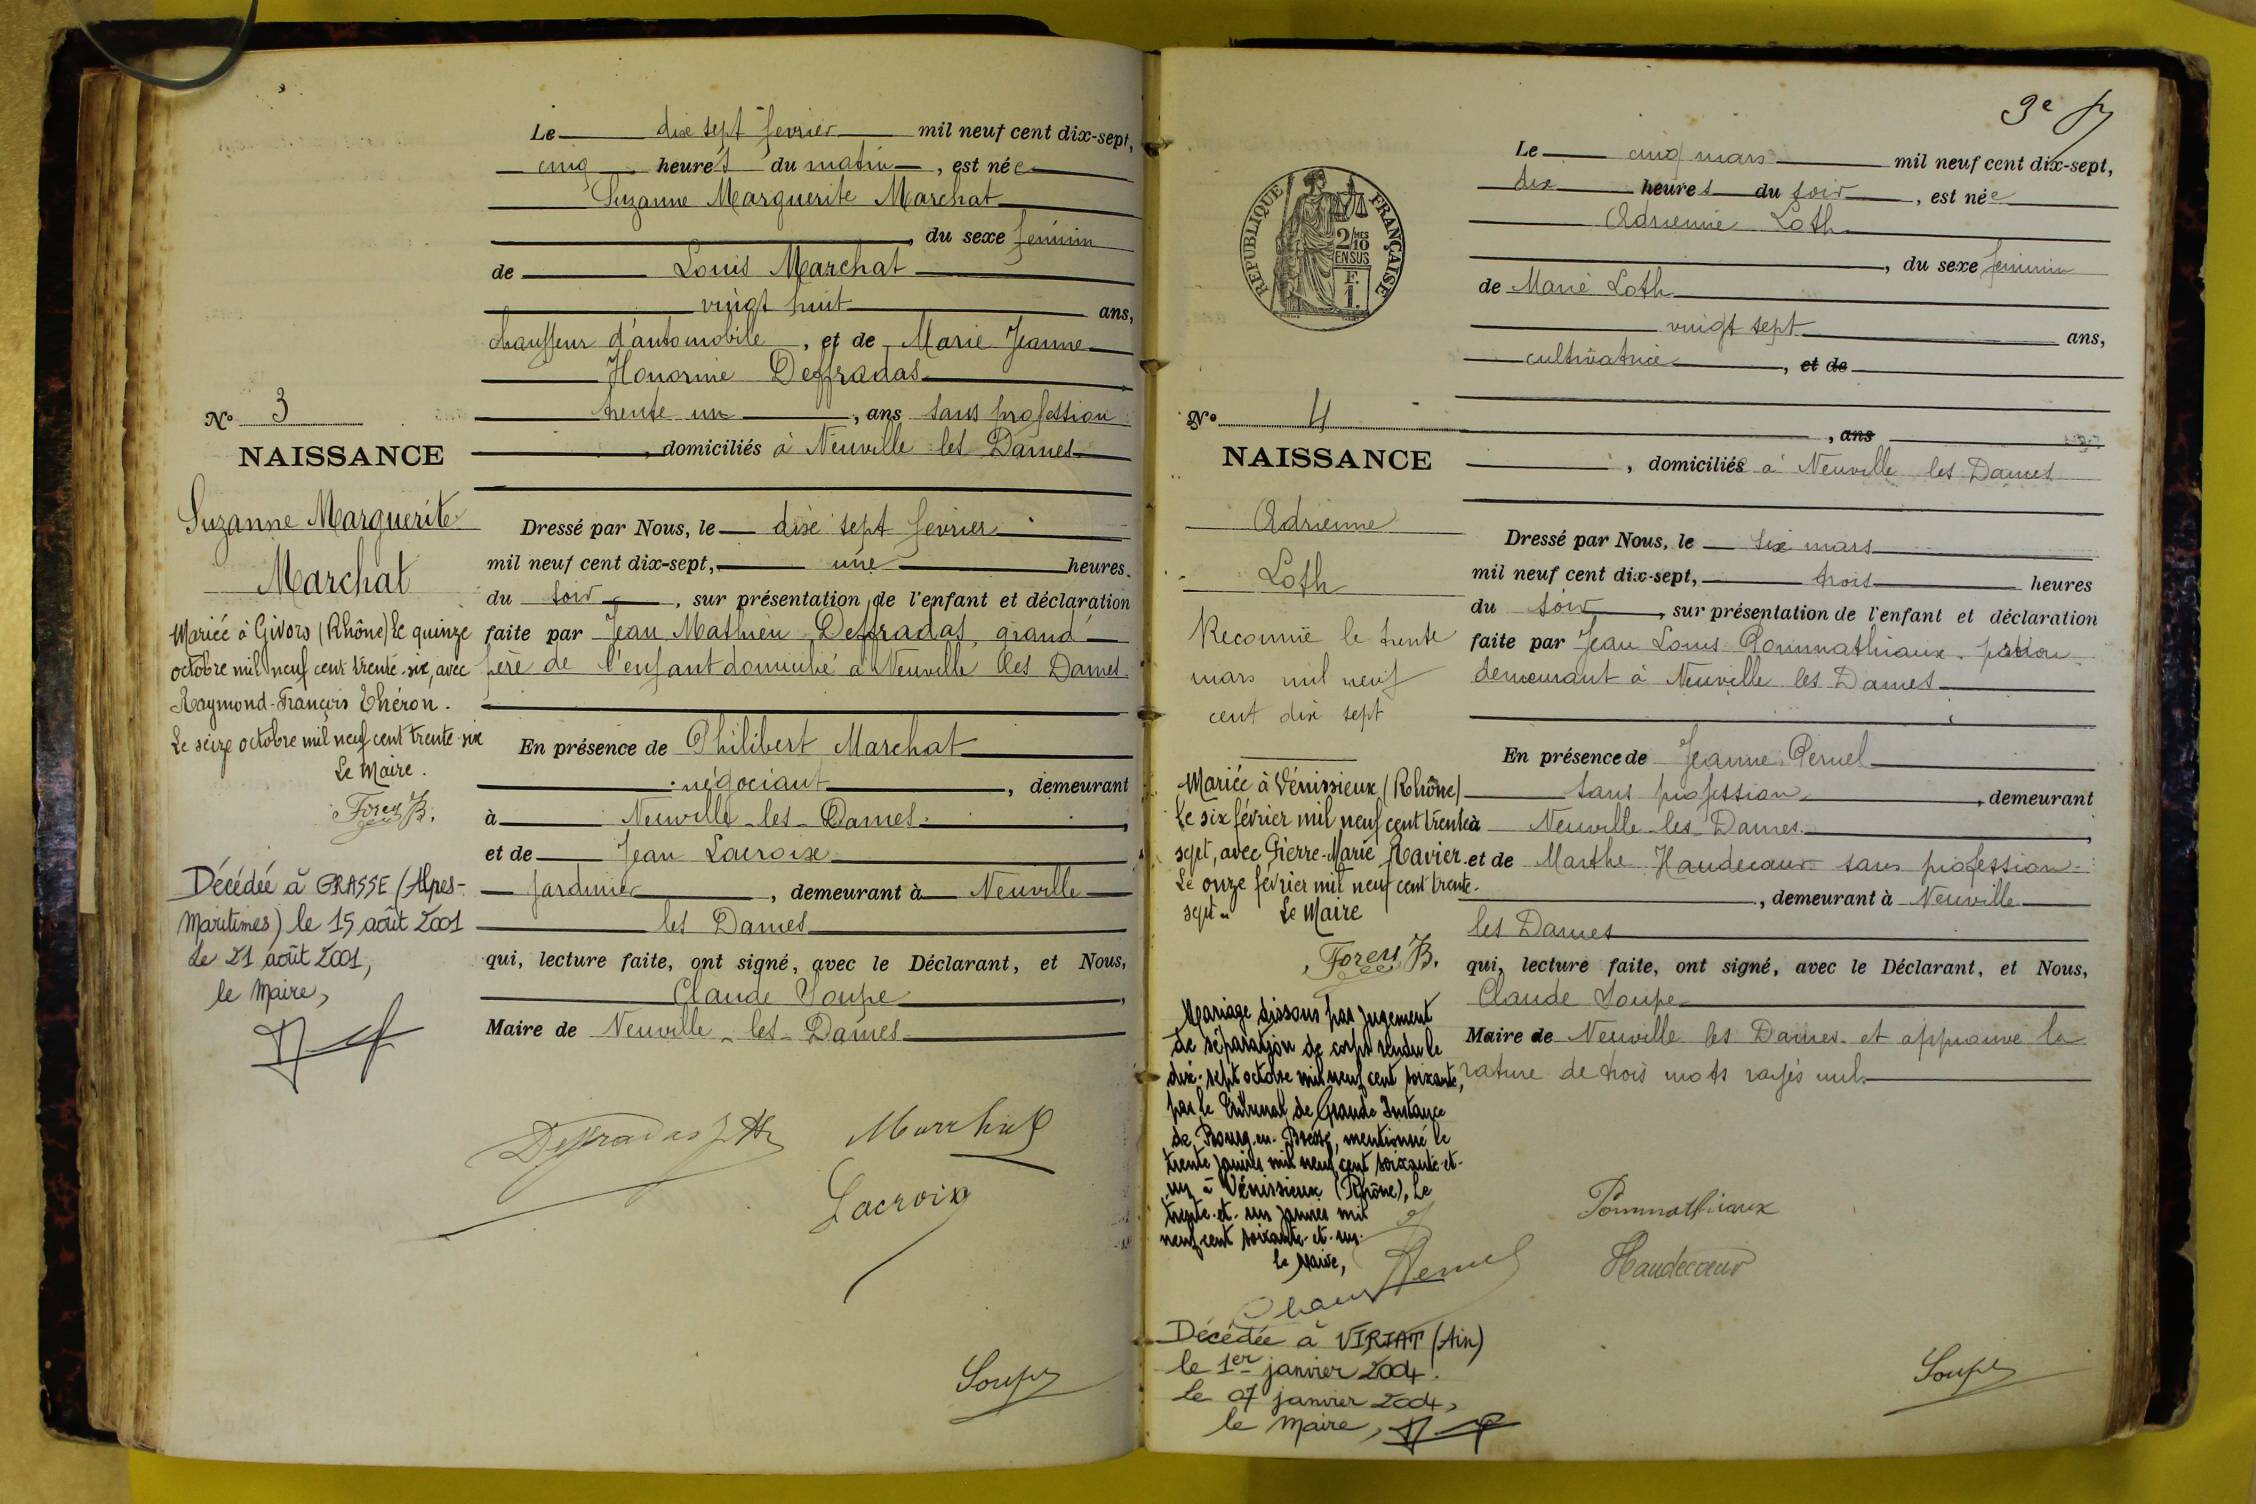 Le dix sept fevrier mil neuf cent dix-sept,
cinq heures du matin, est née
Suzanne Marguerite Marchat
, du sexe feminin
de Louis Marchat
vingt huit ans,
chauffeur d'automobile, et de Marie Jeanne
Honorine Deffradas
trente un, ans sans profession
, domiciliés à Neuville les Dames
No 3
NAISSANCE
Suzanne Marguerite
Marchat
Mariée à Givors (Rhône) le quinze
octobre mil neuf cent trente-six, avec
Raymond-François Théron.
Le seize octobre mil neuf cent trente-six
Le Maire.
Forey B.
Décédée à GRASSE (Alpes-
Maritimes) le 15 août 2001
Le 21 août 2001,
le Maire,
Dressé par Nous, le dix sept fevrier
mil neuf cent dix-sept, une heures.
du soir, sur présentation de l'enfant et déclaration
faite par Jean Mathieu Deffradas, grand
père de l'enfant domicilié à Neuville les Dames
En présence de Philibert Marchat
négociant, demeurant
à Neuville-les-Dames.
et de Jean Lacroix
jardinier, demeurant à Neuville
les Dames
qui, lecture faite, ont signé, avec le Déclarant, et Nous,
Claude Soupe,
Maire de Neuville-les-Dames
Deffradas Marchat
Lacroix
Soupe
3e
REPUBLIQUE FRANÇAISE
2/10 MES
EN SUS
F.
1.
Le cinq mars mil neuf cent dix-sept,
dix heures du soir, est née
Adrienne Loth
, du sexe feminin
de Marie Loth
vingt sept ans,
cultivatrice, et de
, ans
, domiciliés à Neuville les Dames
No 4
NAISSANCE
Adrienne
Loth
Reconnue le trente
mars mil neuf
cent dix sept
Mariée à Vénissieux (Rhône)
le six février mil neuf cent trente
sept, avec Pierre-Marie Ravier.
Le onze février mil neuf cent trente-
sept. Le Maire
Forey B.
Mariage dissous par jugement
de séparation de corps rendu le
dix-sept octobre mil neuf cent soixante,
par le Tribunal de Grande Instance
de Bourg-en-Bresse, mentionné le
trente janvier mil neuf cent soixante-et-
un à Vénissieux (Rhône), Le
trente-et-un janvier mil
neuf cent soixante-et-un.
Le Maire,
Décédée à VIRIAT (Ain)
le 1er janvier 2004.
Le 07 janvier 2004,
le Maire,
Dressé par Nous, le six mars
mil neuf cent dix-sept, trois heures
du soir, sur présentation de l'enfant et déclaration
faite par Jean Louis Pommathiaux. patron
demeurant à Neuville les Dames
En présence de Jeanne Pernel
sans profession, demeurant
à Neuville-les-Dames.
et de Marthe Haudecœur sans profession
, demeurant à Neuville
les Dames
qui, lecture faite, ont signé, avec le Déclarant, et Nous,
Claude Soupe
Maire de Neuville les Dames et approuve la
rature de trois mots rayés nul.
Pommathiaux
Pernel
Haudecœur
Soupe